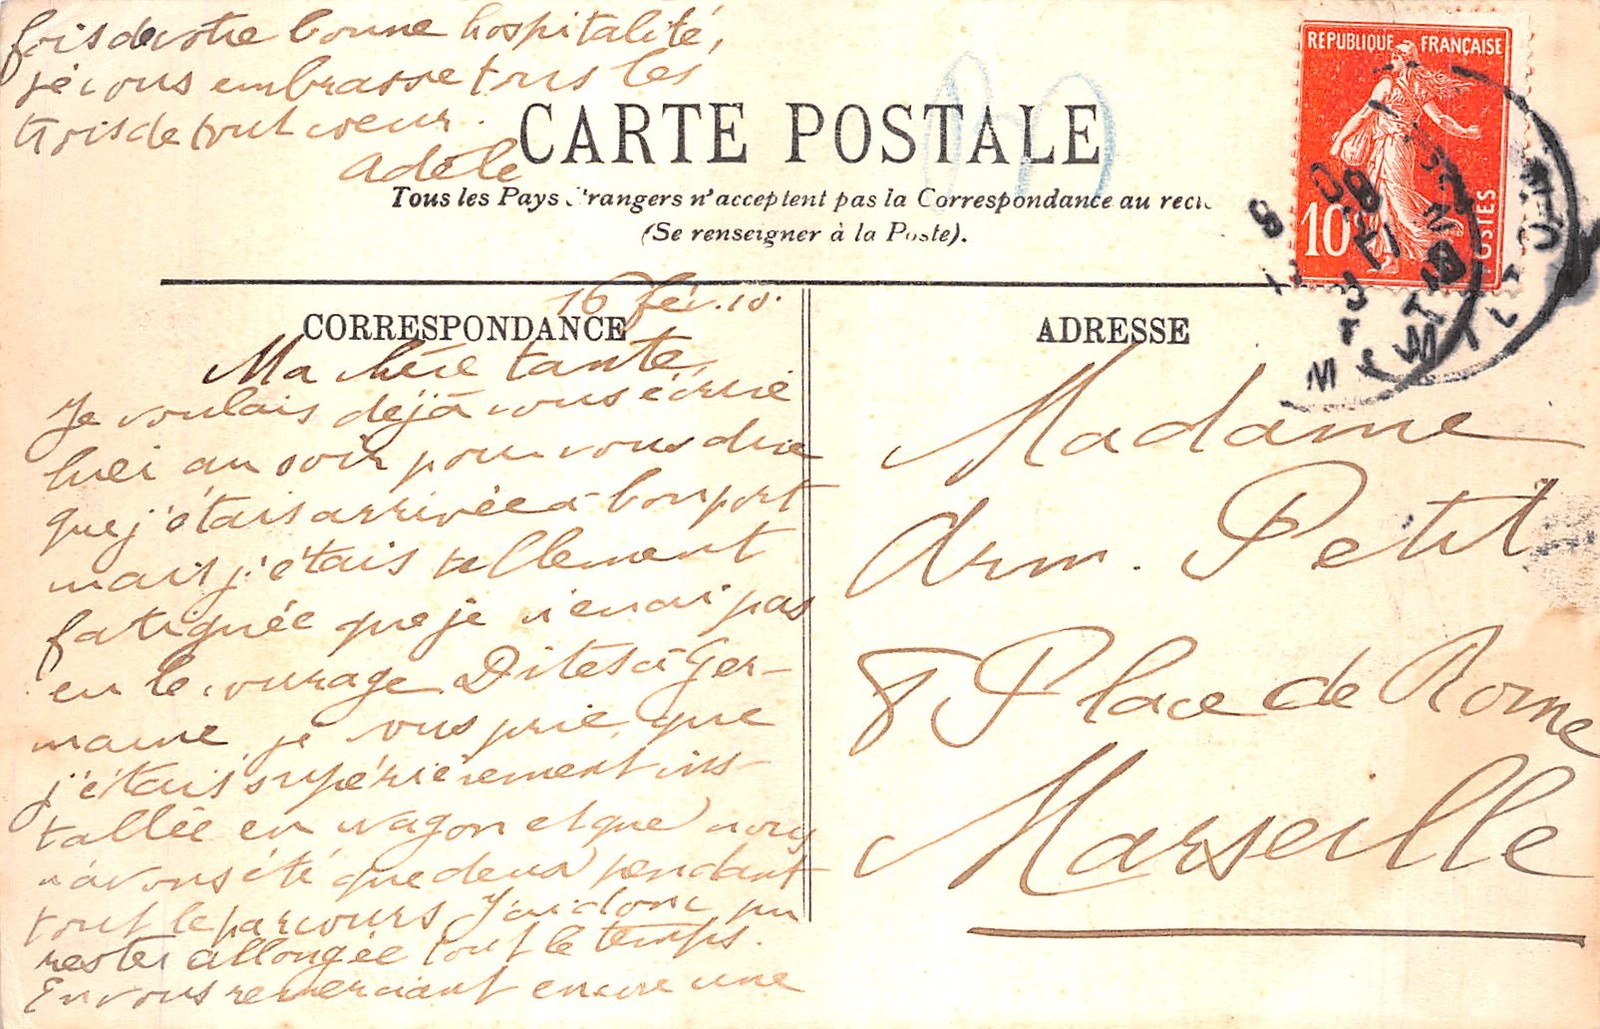 fois de votre bonne hospitalité,
je vous embrasse tous les
trois de tout coeur.
Adèle
CARTE POSTALE
Tous les Pays étrangers n'acceptent pas la Correspondance au recto
(Se renseigner à la Poste).
REPUBLIQUE FRANÇAISE
10
POSTES
16 fév. 10.
CORRESPONDANCE
Ma chère tante,
Je voulais déjà vous écrire
hier au soir pour vous dire
que j'étais arrivée à bon port
mais j'étais tellement
fatiguée que je n'en ai pas
eu le courage. Dites à Ger-
maine, je vous prie, que
j'étais supérieurement ins-
tallée en wagon et que nous
n'avons été que deux pendant
tout le parcours. J'ai donc pu
rester allongée tout le temps.
En vous remerciant encore une
ADRESSE
Madame
Arm. Petit
8 Place de Rome
Marseille